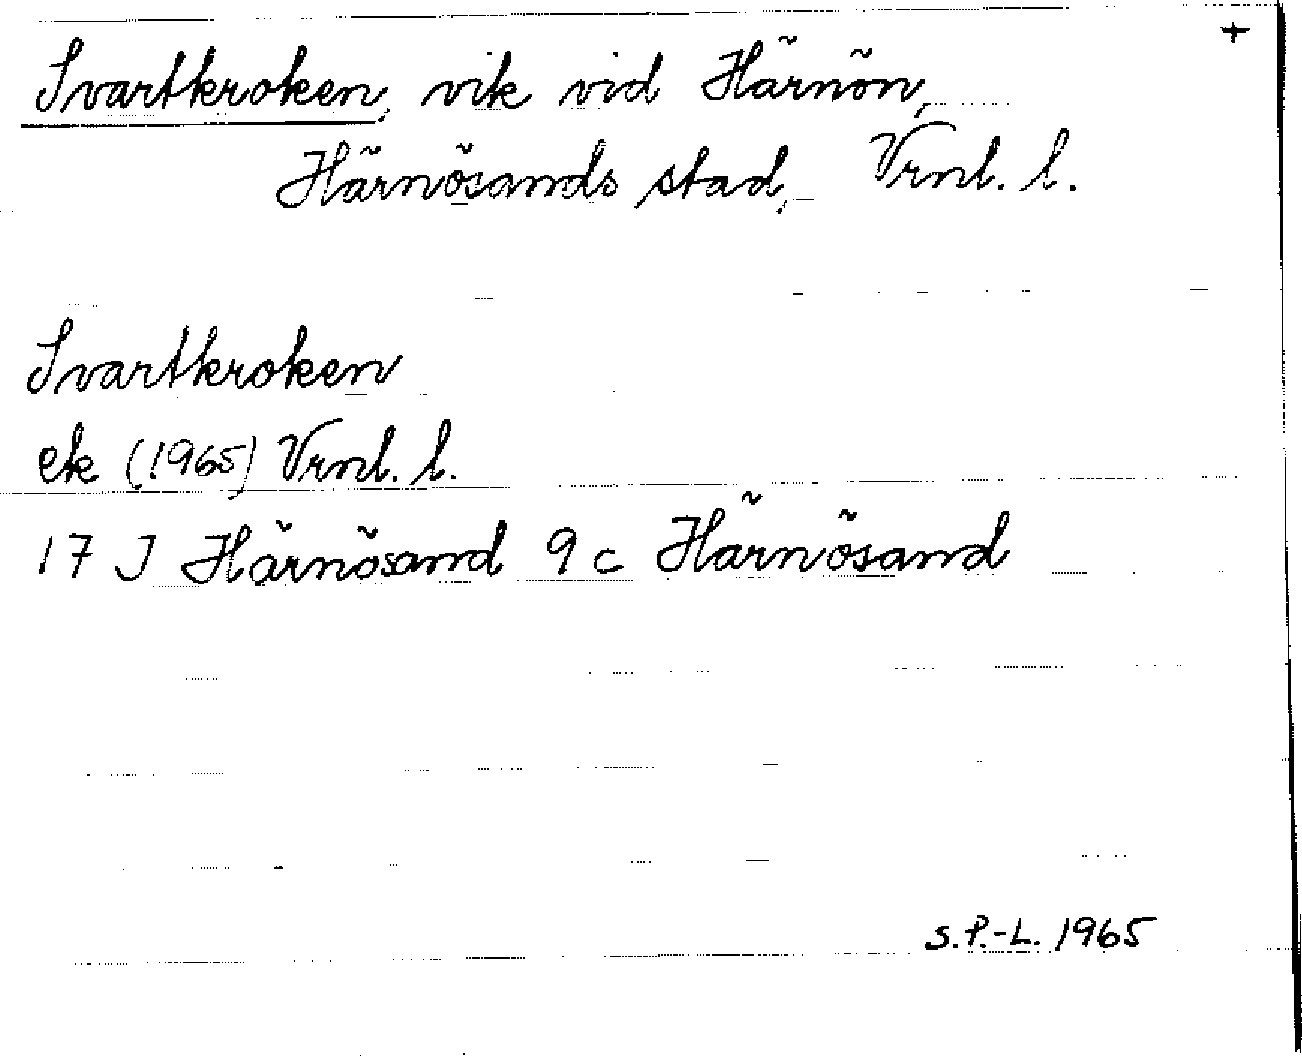 +
Svartkroken, vik vid Härnön,
Härnösands stad, Vrnl. l.
Svartkroken
ek (1965) Vrnl. l.
17 J Härnösand 9 c Härnösand
S.P.-L. 1965